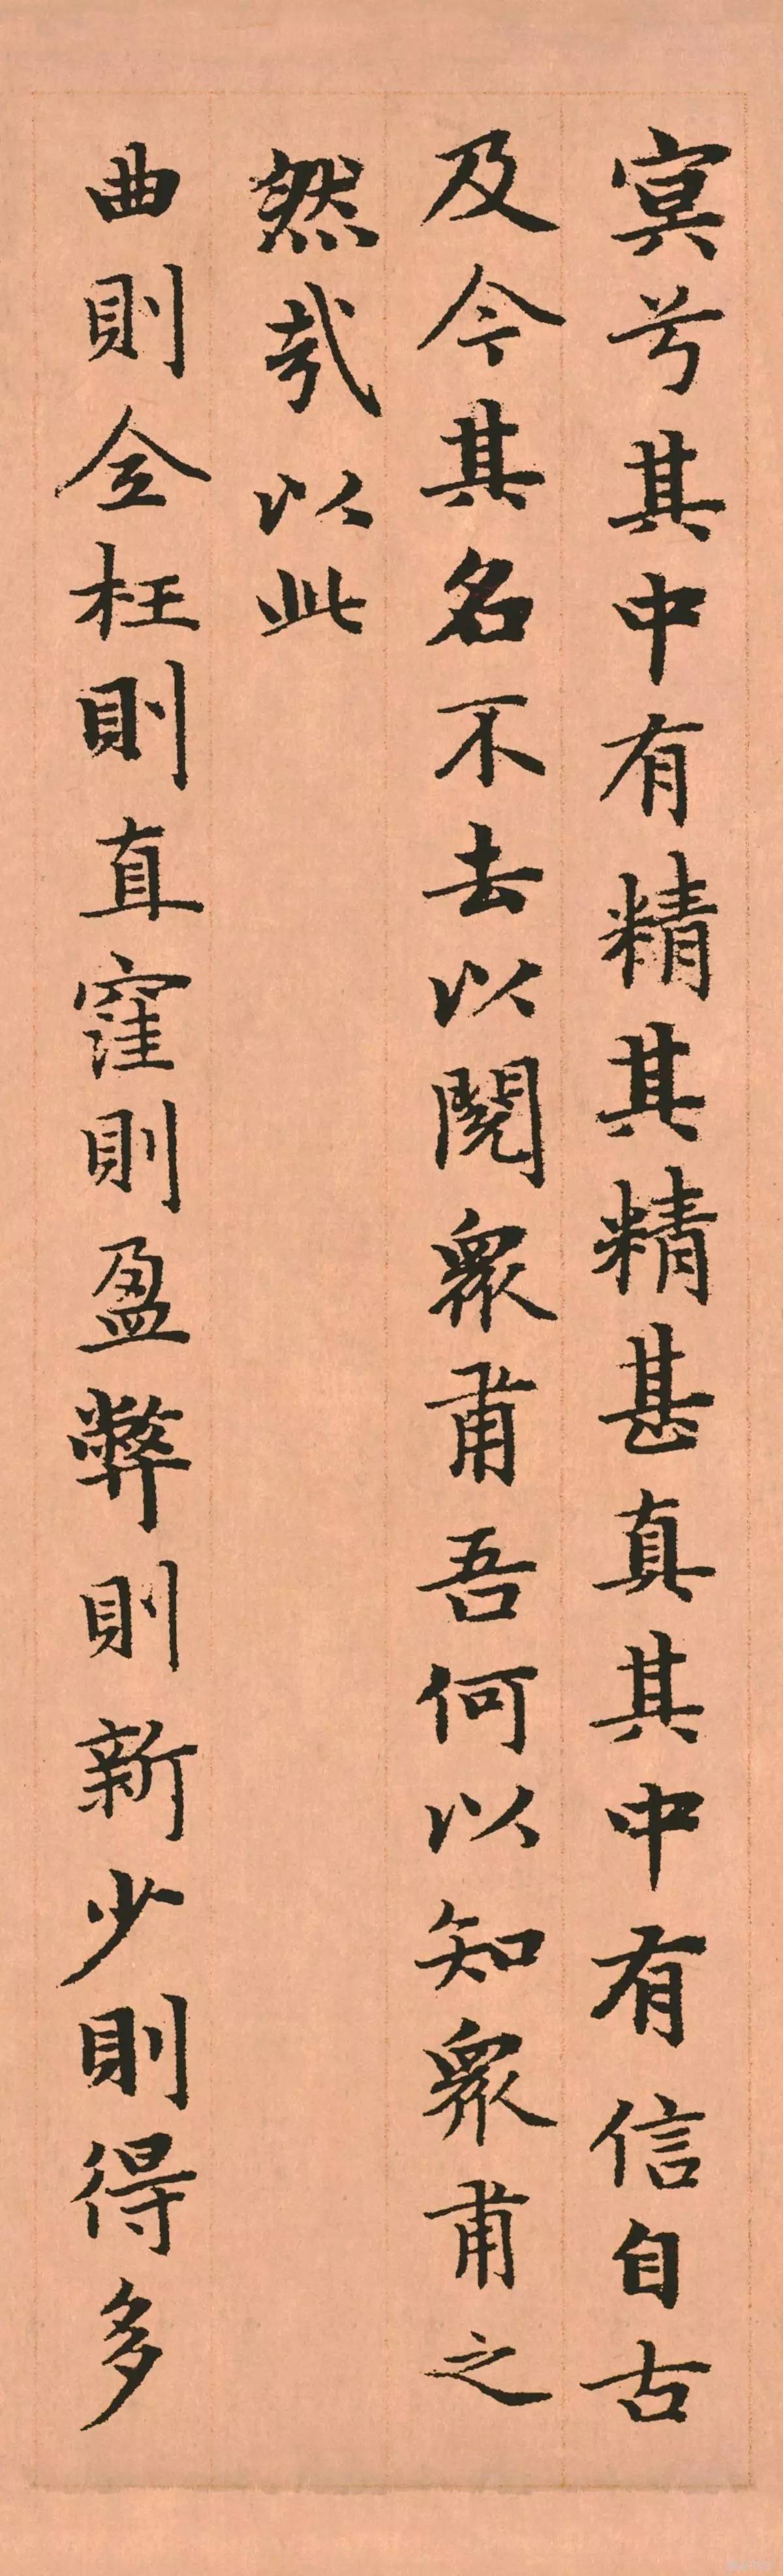 冥兮其中有精其精甚真其中有信自古
及今其名不去以閱衆甫吾何以知衆甫之
然哉以此
曲則全枉則直窪則盈弊則新少則得多